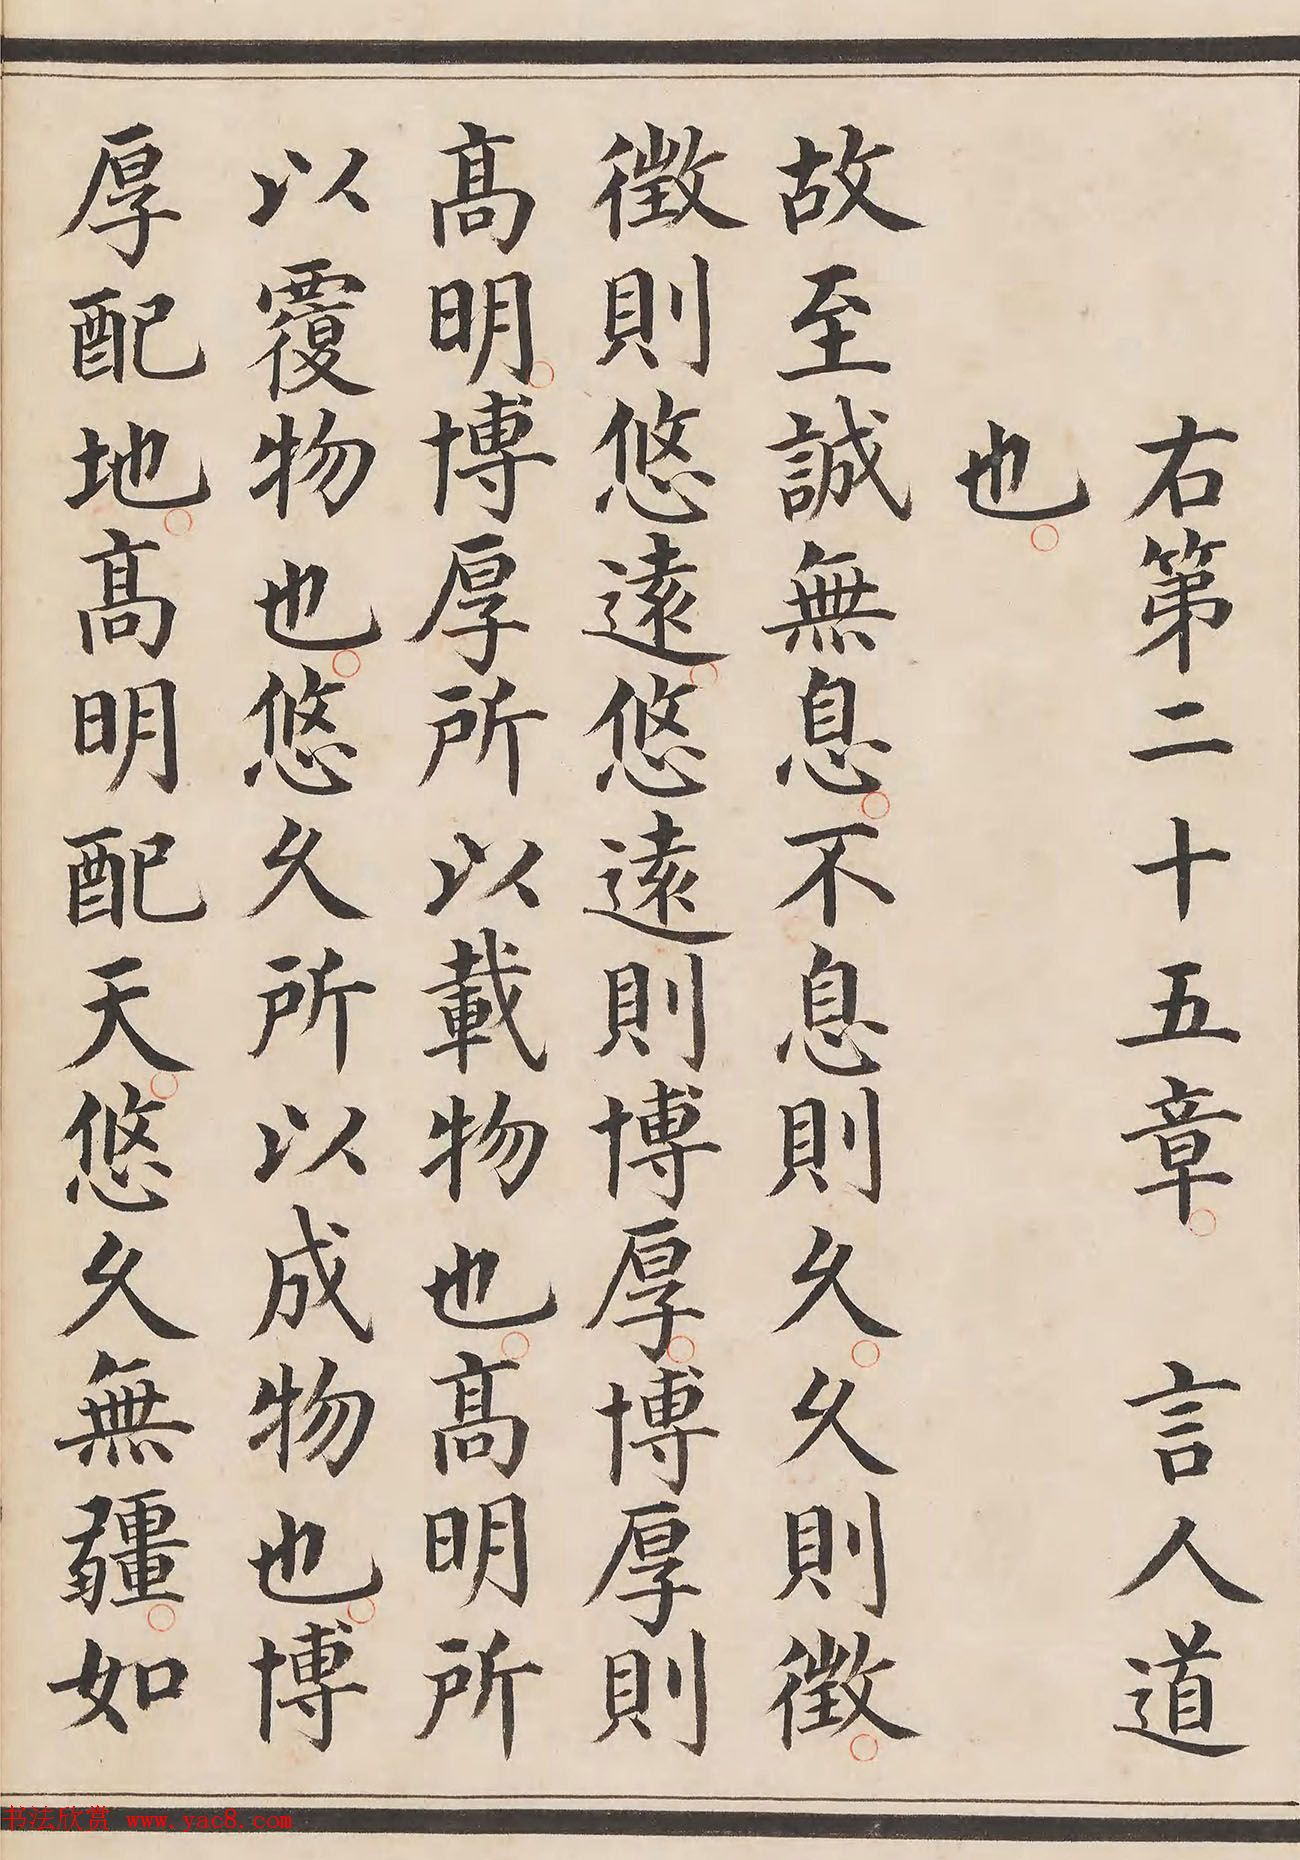 右第二十五章。 言人道
也。
故至誠無息。不息則久。久則徵。
徵則悠遠。悠遠則博厚。博厚則
高明。博厚所以載物也。高明所
以覆物也。悠久所以成物也。博
厚配地。高明配天。悠久無疆。如
书法欣赏 www.yac8.com